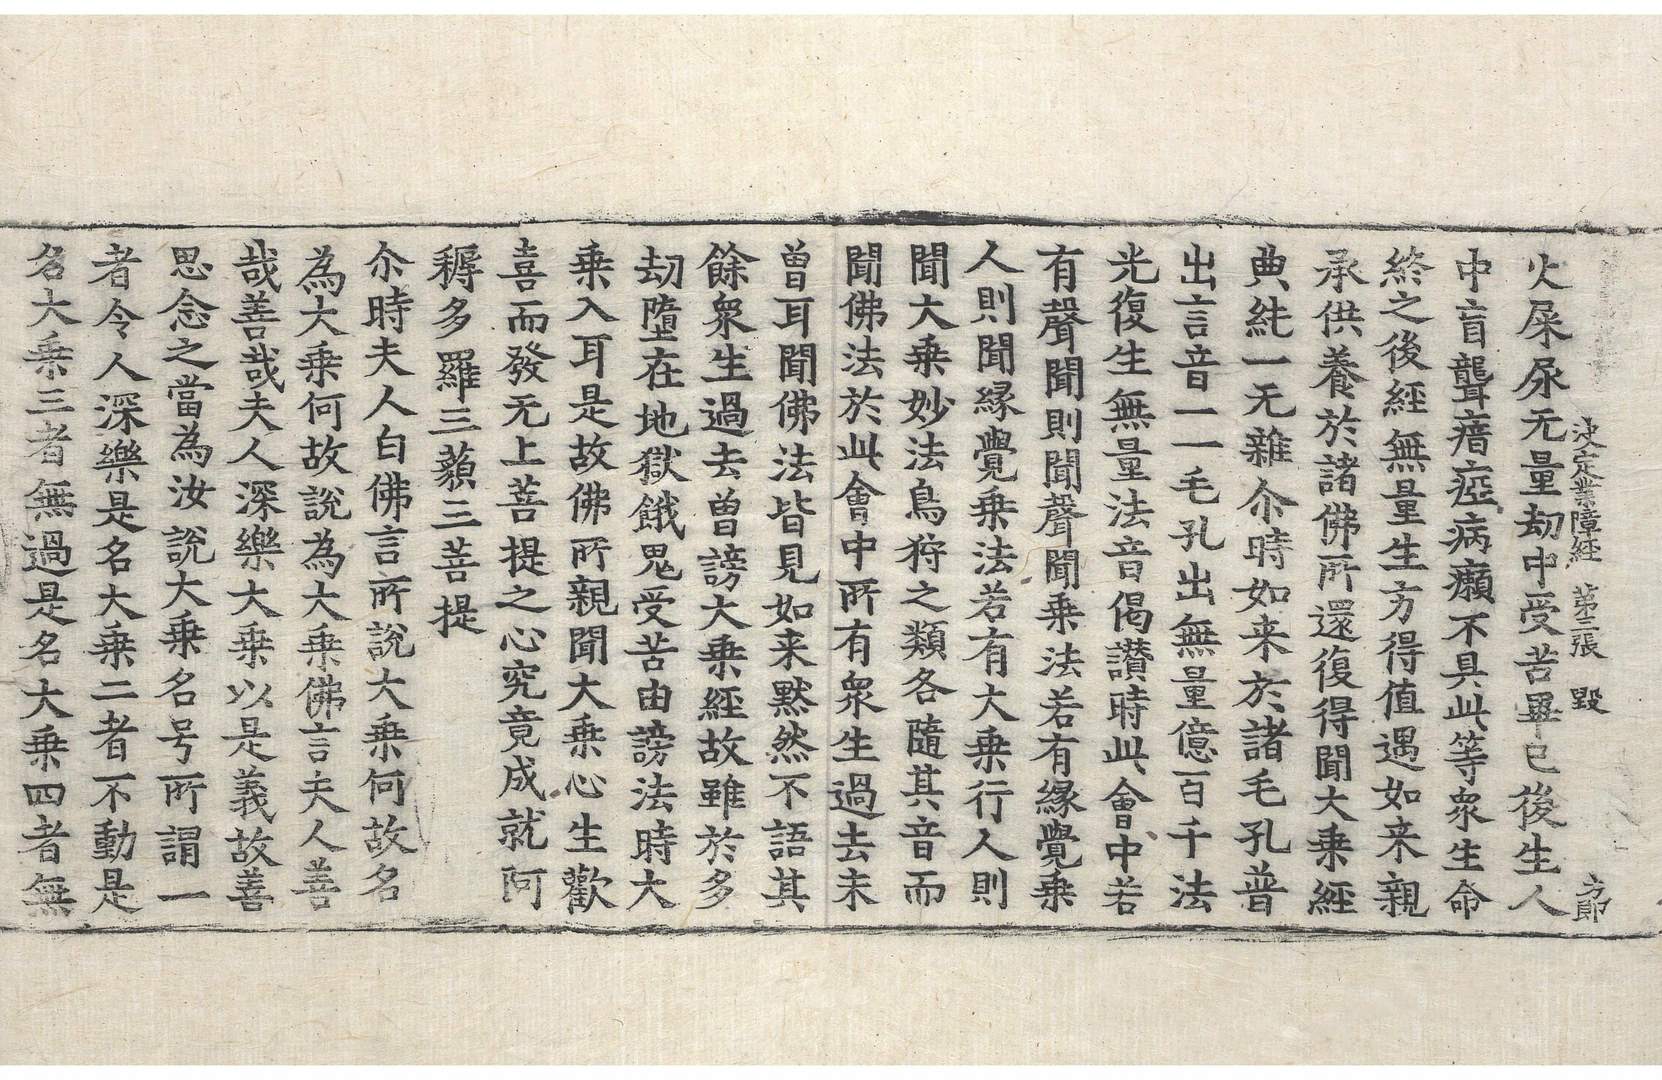 決定業障經 第二張 毀 方郎
火屎尿无量劫中受苦畢已後生人
中盲聾瘖瘂病癩不具此等衆生命
終之後經無量生方得值遇如来親
承供養於諸佛所還復得聞大乗經
典純一无雜尒時如来於諸毛孔普
出言音一一毛孔出無量億百千法
光復生無量法音偈讃時此會中若
有聲聞則聞聲聞乗法若有縁覺乗
人則聞縁覺乗法若有大乗行人則
聞大乗妙法鳥狩之類各隨其音而
聞佛法於此會中所有衆生過去未
曽耳聞佛法皆見如来黙然不語其
餘衆生過去曽謗大乗經故雖於多
劫墮在地獄餓鬼受苦由謗法時大
乗入耳是故佛所親聞大乗心生歡
喜而發无上菩提之心究竟成就阿
耨多羅三藐三菩提
尒時夫人白佛言所說大乗何故名
為大乗何故說為大乗佛言夫人善
哉善哉夫人深樂大乗以是義故善
思念之當為汝說大乗名号所謂一
者令人深樂是名大乗二者不動是
名大乗三者無過是名大乗四者無